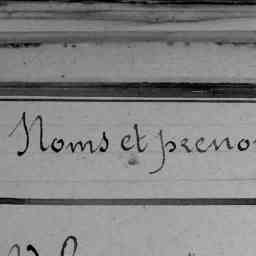 Noms et preno